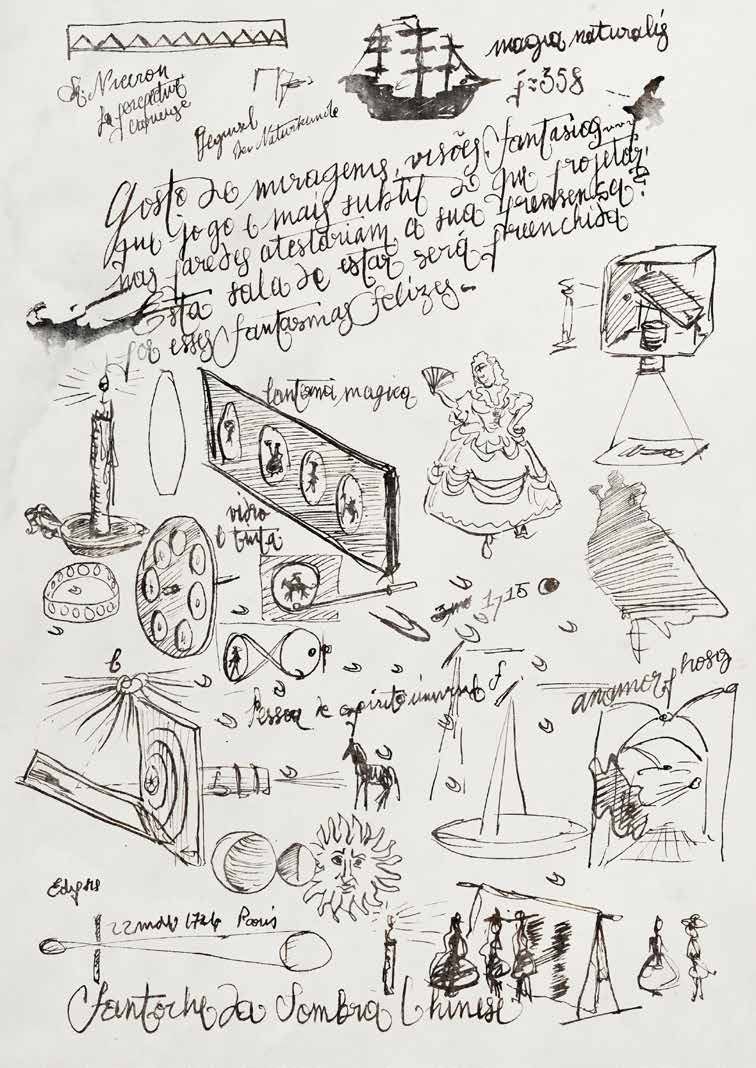 magia naturalis
f = 358
Niceron
la perspective
curieuse
der Naturkunde
Gosto de miragens, visões, fantasias
que jogo é mais subtil do que projetar
nas paredes atestariam a sua presença?
Esta sala de estar será preenchida
por esses fantasmas felizes.
lanterna magica
vidro
e tinta
1715
b
f
Pessoa de espirito universal
anamorphosis
22 maio 1724 Paris
Fantoche da Sombra Chinese